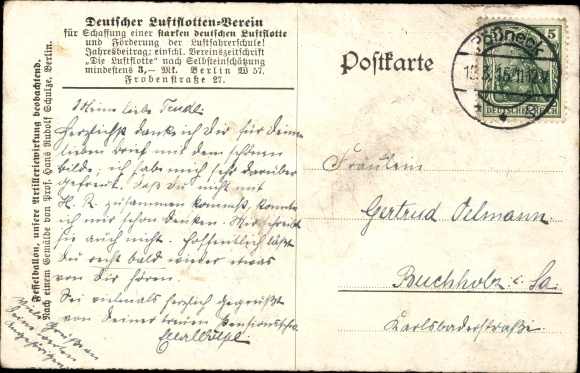 Deutscher Luftflotten-Verein
für Schaffung einer starken deutschen Luftflotte
und Förderung der Luftfahrerschule!
Jahresbeitrag: einschl. Vereinszeitschrift
„Die Luftflotte" nach Selbsteinschätzung
mindestens 3,— Mk. Berlin W 57,
Frobenstraße 27.
Fesselballon, unsere Artilleriewirkung beobachtend.
Nach einem Gemälde von Prof. Hans Rudolf Schulze, Berlin.
Meine liebe Trudl!
Herzlichst danke ich Dir für Deinen
lieben Brief mit dem schönen
Bilde; ich habe mich sehr darüber
gefreut. Daß Du nicht mit
H. R. zusammen kommst, konnte
ich mir schon denken. Mir schreibt
sie auch nicht. Hoffentlich läßt
Du recht bald wieder etwas
von Dir hören.
Sei vielmals herzlich gegrüßt
von Deiner treuen
Viele Grüße an
Deine werten
Postkarte
5
DEUTSCHES REICH
Fräulein
Gertrud Oelmann.
Buchholz i. Sa.
Karlsbaderstraße.